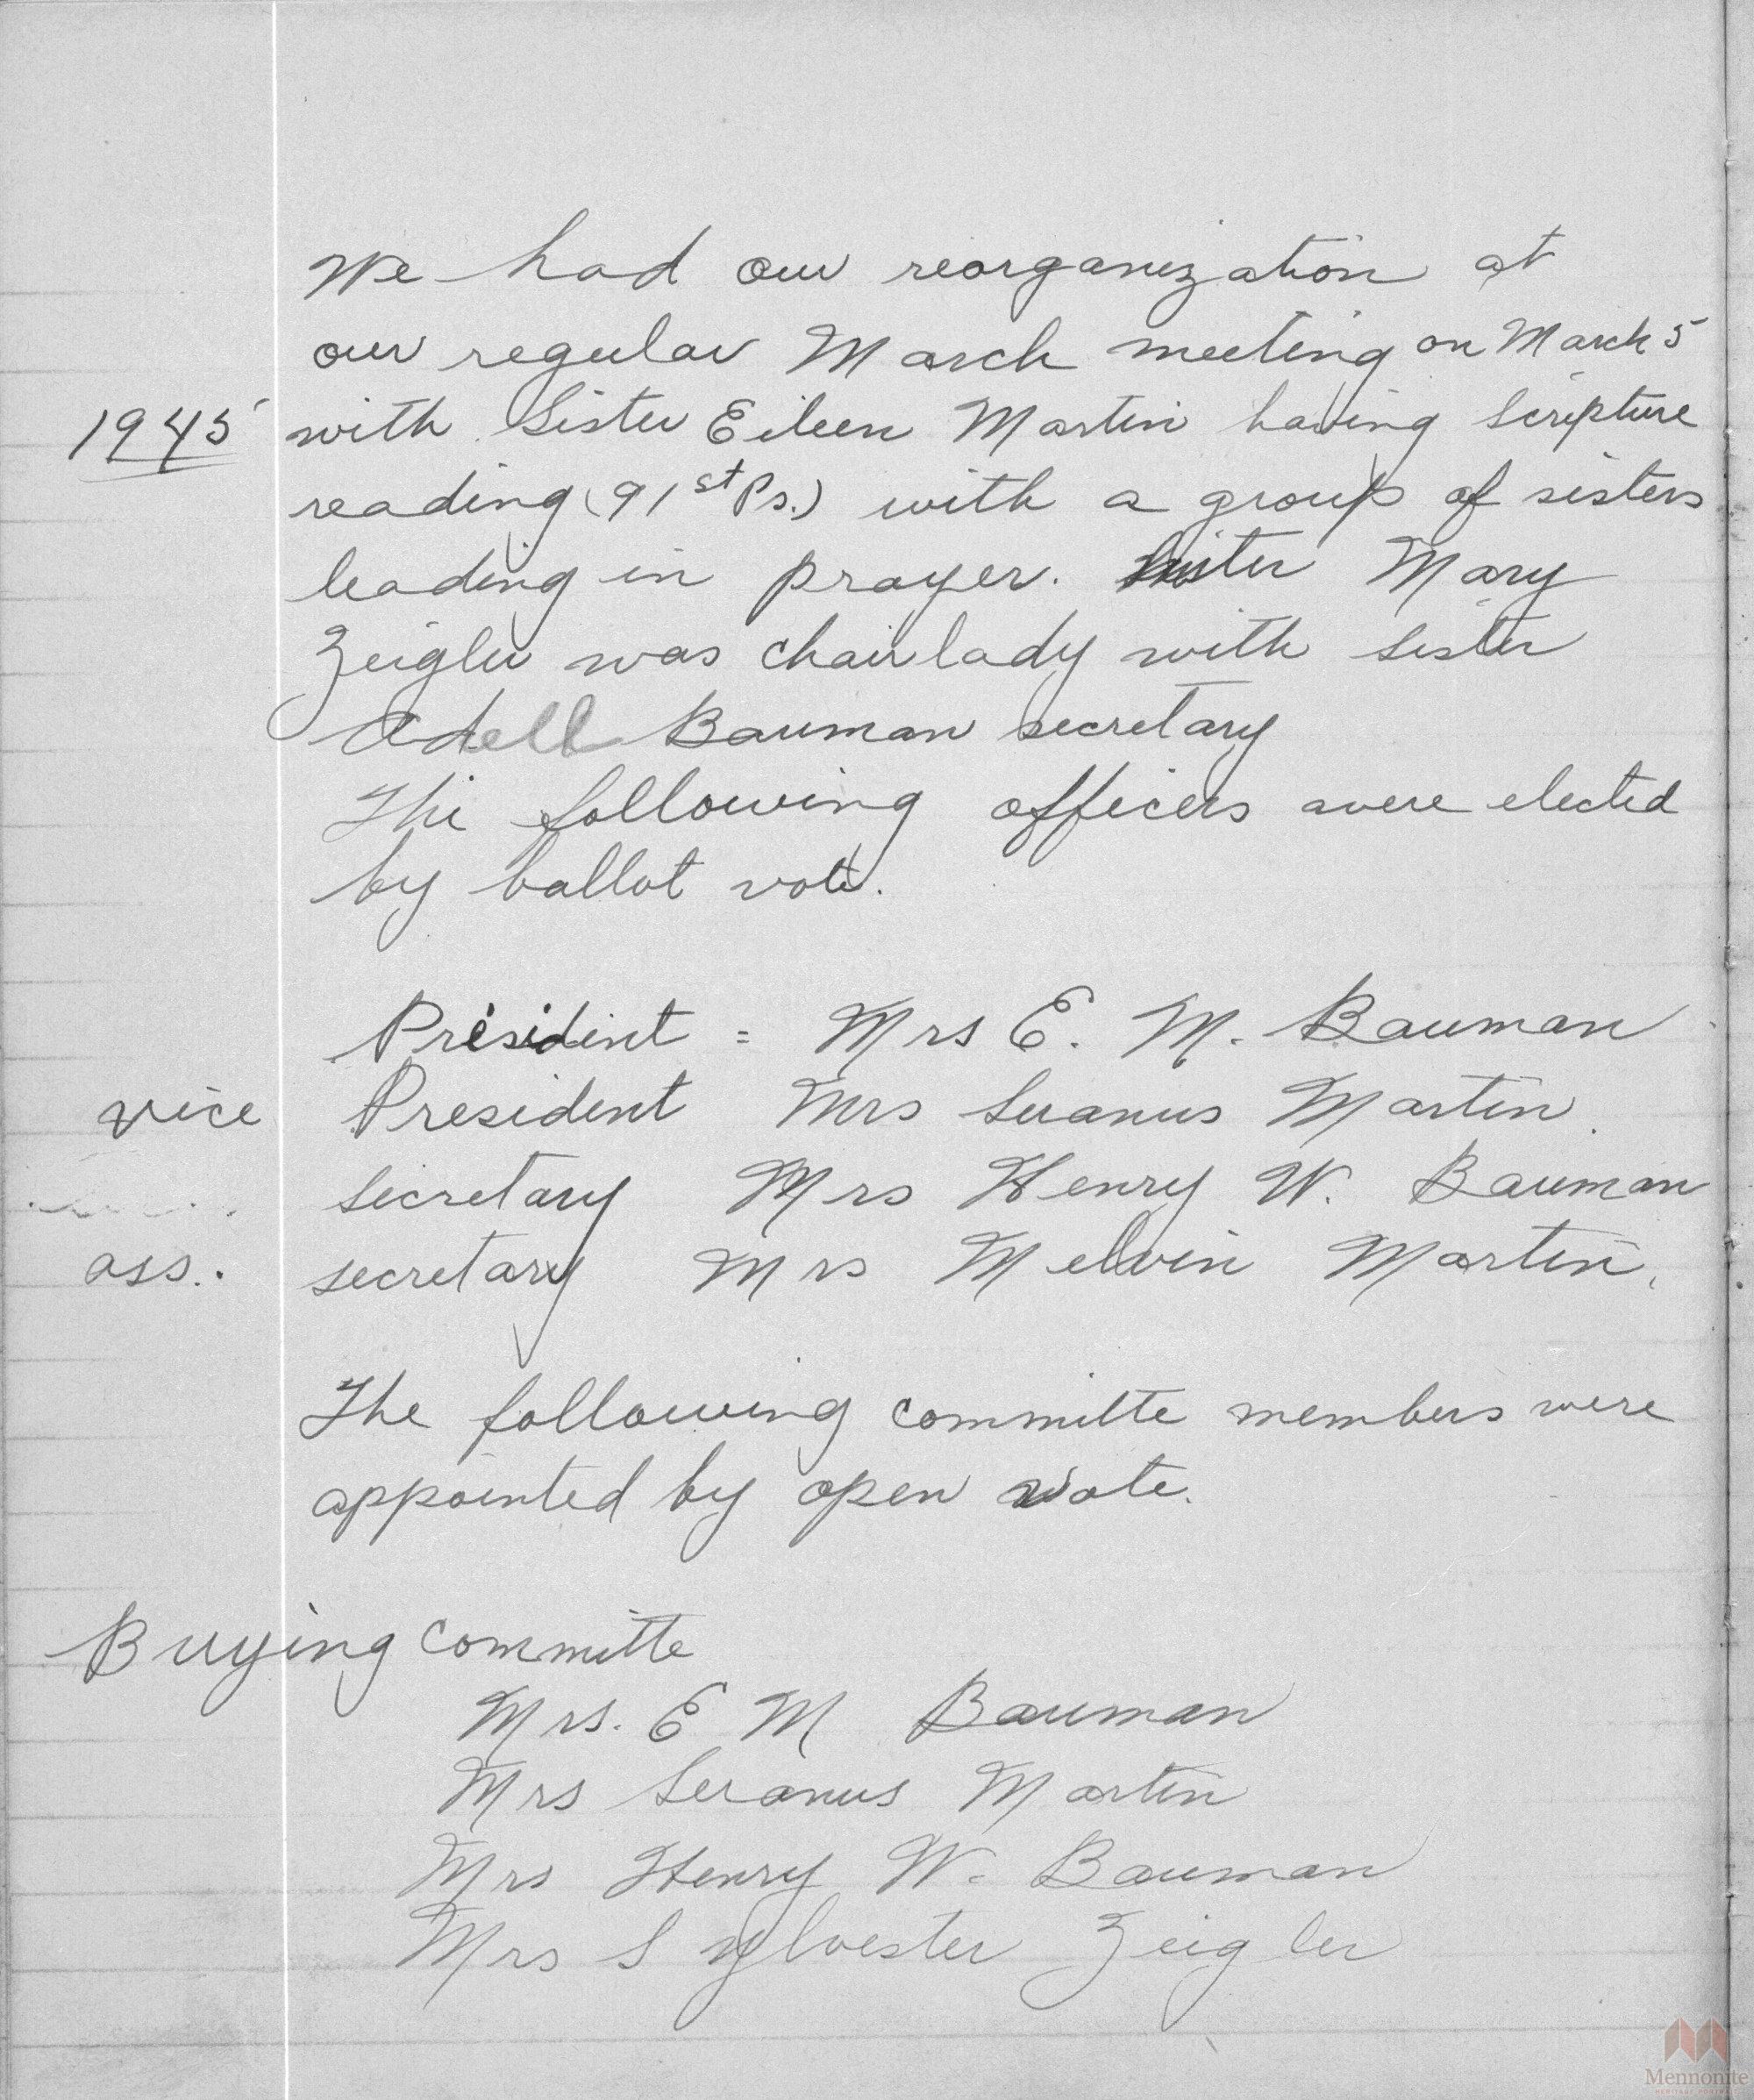 We had our reorganization at
our regular March meeting on March 5
1945 with Sister Eileen Martin having Scripture
reading (91st Ps.) with a group of sisters
leading in prayer. Sister Mary
Zeigler was chairlady with sister
Adell Bauman secretary
The following officers were elected
by ballot vote.
President = Mrs E. M. Bauman
vice President Mrs Seranus Martin.
Secretary Mrs Henry W. Bauman
ass.. secretary Mrs Melvin Martin.
The following committe members were
appointed by open vote.
Buying Committe
Mrs. E M Bauman
Mrs Seranus Martin
Mrs Henry W. Bauman
Mrs Sylvester Zeigler
Mennonite